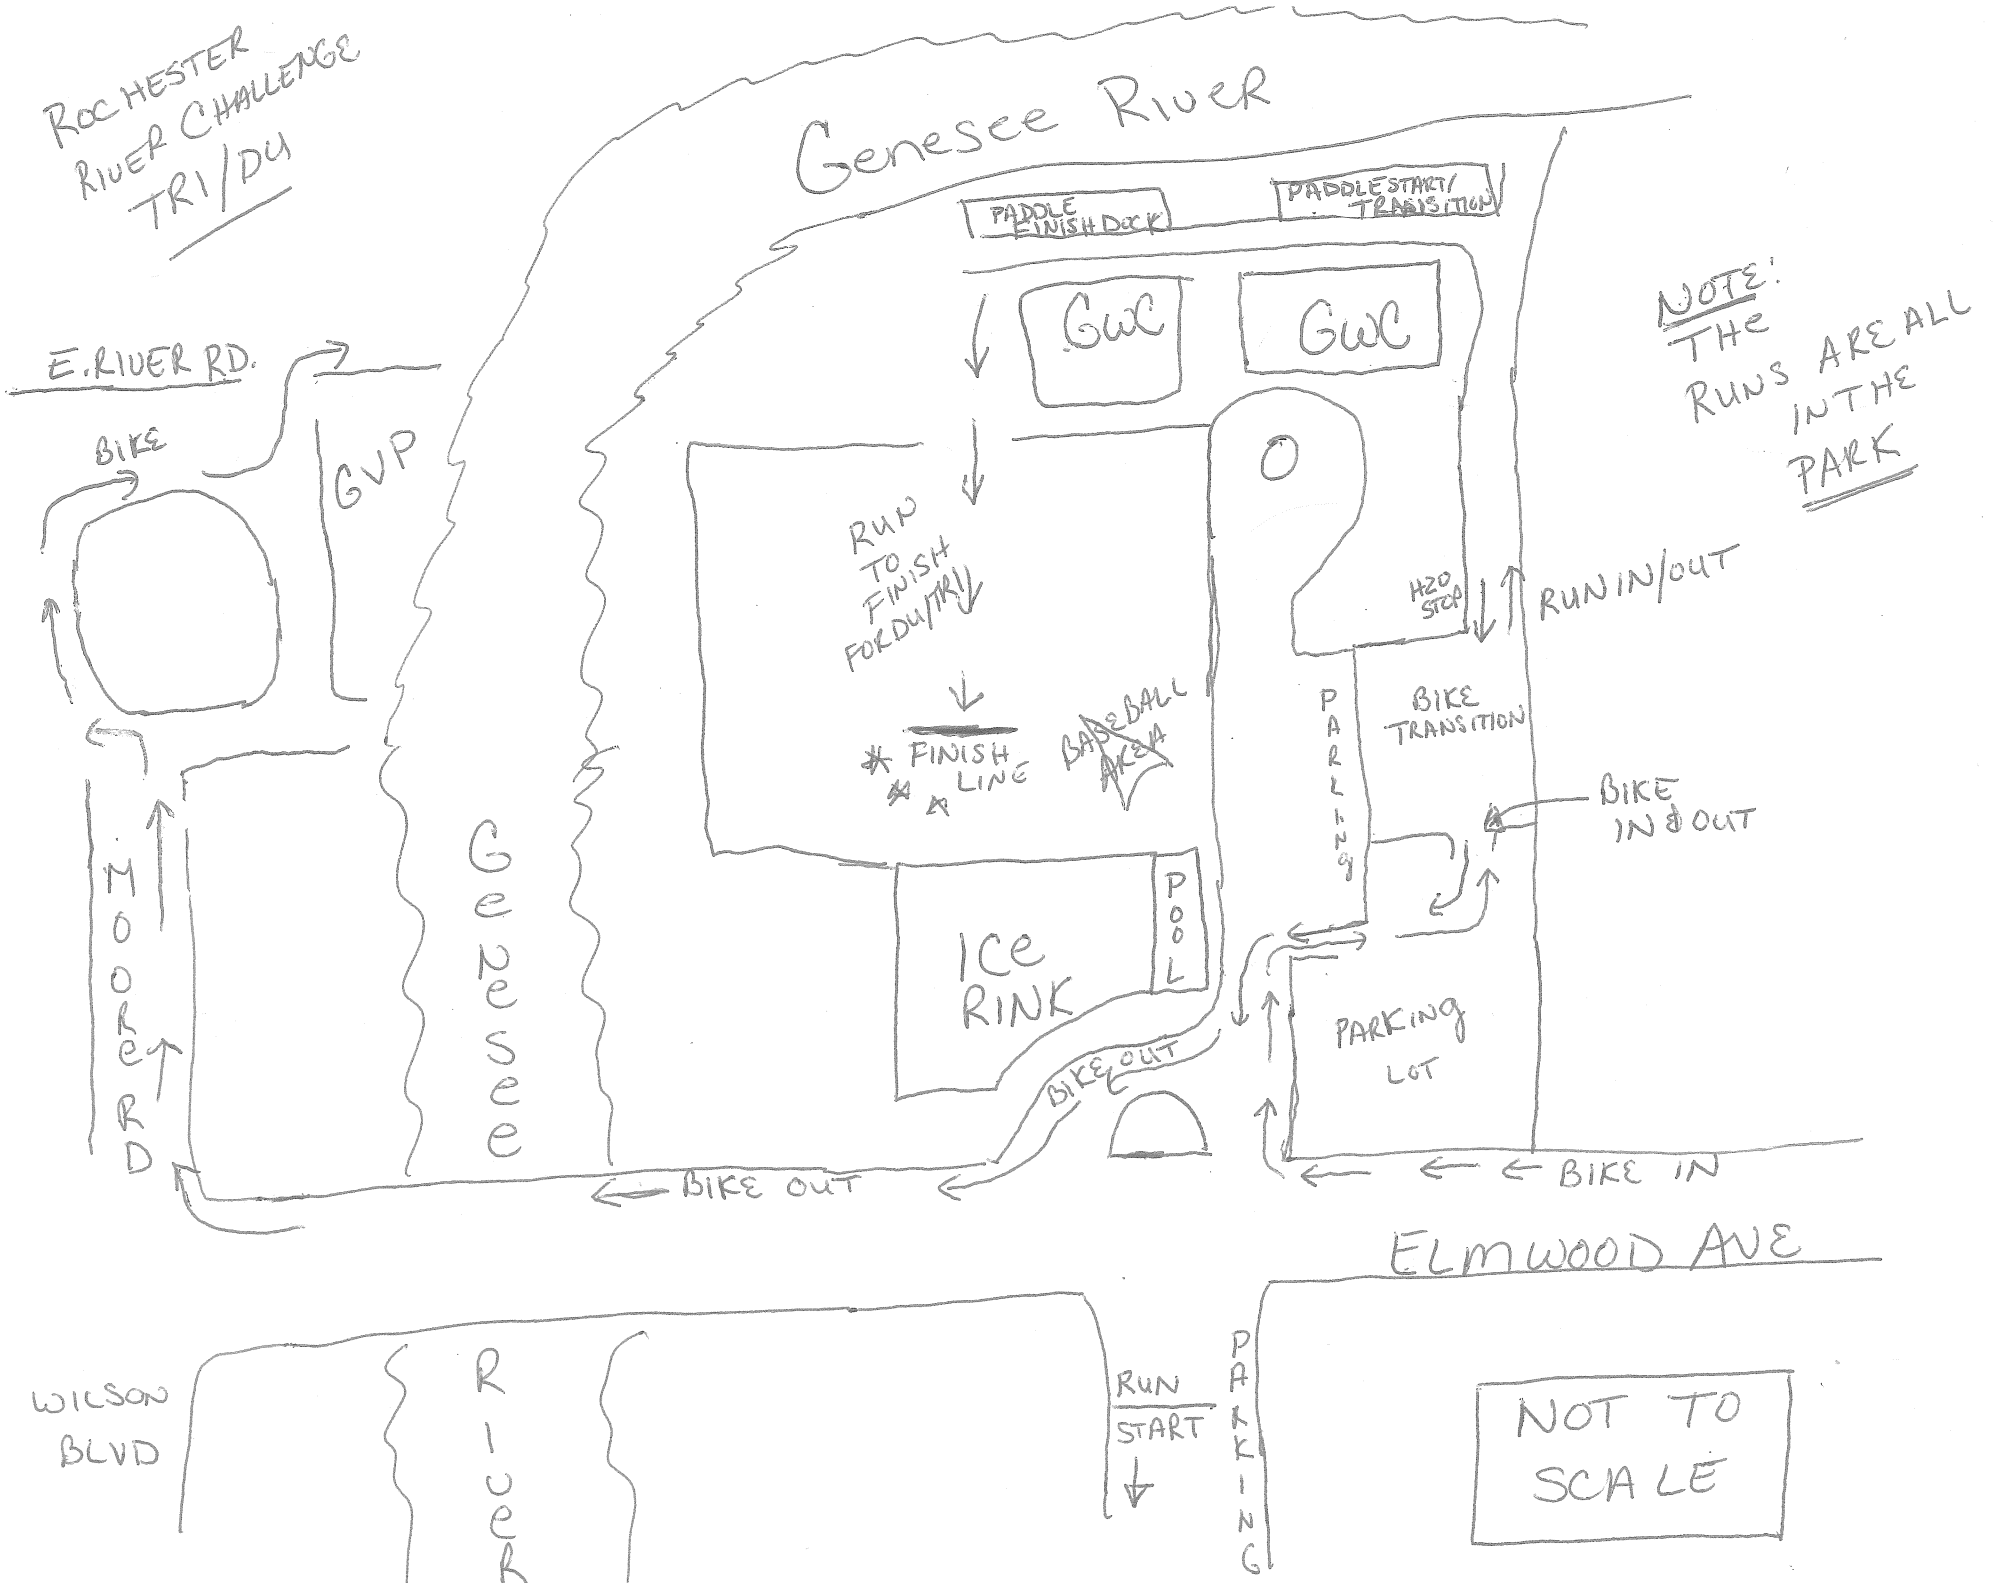 ROCHESTER
RIVER CHALLENGE
TRI/DU
Genesee River
PADDLE
FINISH DOCK
PADDLE START/
TRANSITION
GWC
GWC
NOTE:
THE
RUNS ARE ALL
IN THE
PARK
E. RIVER RD.
BIKE
GVP
O
RUN
TO
FINISH
FOR DU/TRI
H20
STOP
RUN IN/OUT
BIKE
TRANSITION
PARKING
BASEBALL
AREA
FINISH
LINE
BIKE
IN & OUT
MOORE RD
Genesee
POOL
ICE
RINK
PARKING
LOT
BIKE OUT
BIKE OUT
BIKE IN
ELMWOOD AVE
WILSON
BLVD
RIVER
RUN
START
PARKING
NOT TO
SCALE